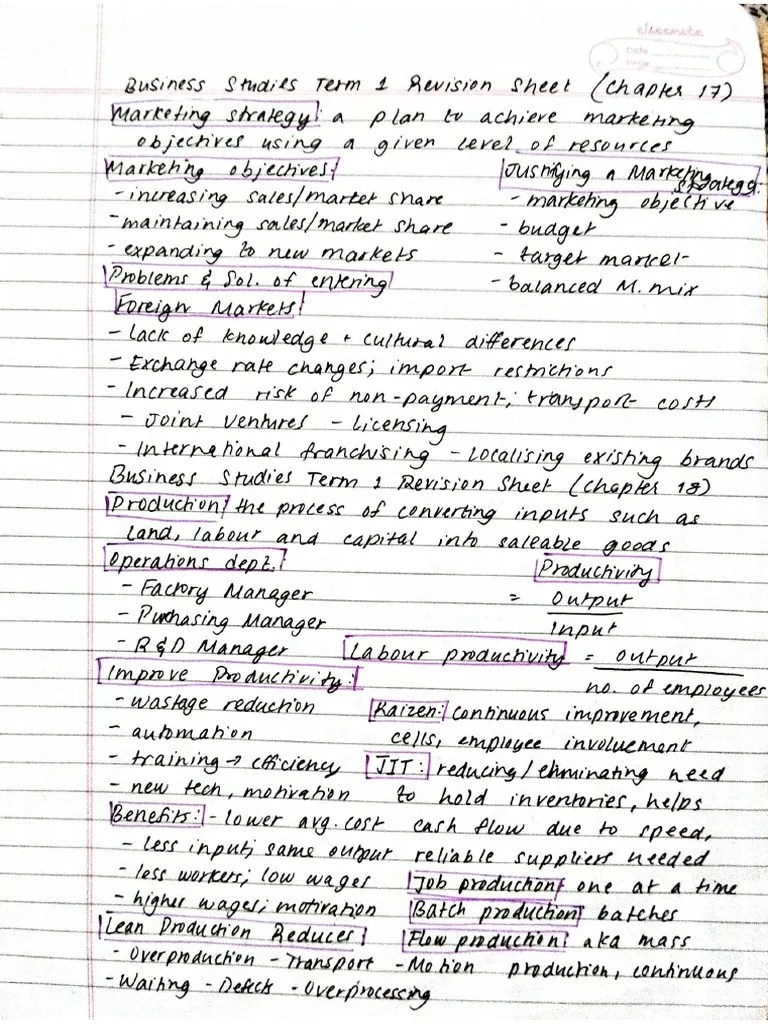 classmate
Date
Page
Business Studies Term 1 Revision Sheet (Chapter 17)
Marketing strategy: a plan to achieve marketing
objectives using a given level of resources
Marketing objectives:
- increasing sales/market share
- maintaining sales/market share
- expanding to new markets
Justifying a Marketing
strategy:
- marketing objective
- budget
- target market
- balanced M. mix
Problems & Sol. of entering
Foreign Markets:
- Lack of knowledge + cultural differences
- Exchange rate changes; import restrictions
- Increased risk of non-payment; transport costs
- Joint ventures - Licensing
- International franchising - Localising existing brands
Business Studies Term 1 Revision Sheet (Chapter 18)
Production: the process of converting inputs such as
land, labour and capital into saleable goods
Operations dept.:
- Factory Manager
- Purchasing Manager
- R&D Manager
Productivity
= Output
Input
Labour productivity = output
no. of employees
Improve Productivity:
- wastage reduction
- automation
- training → efficiency
- new tech, motivation
Kaizen: continuous improvement,
cells, employee involvement
JIT: reducing/eliminating need
to hold inventories, helps
cash flow due to speed,
reliable suppliers needed
Benefits: - lower avg. cost
- less input; same output
- less workers; low wages
- higher wages; motivation
Job production: one at a time
Batch production: batches
Flow production: aka mass
production, continuous
Lean Production Reduces:
- Overproduction - Transport - Motion
- Waiting - Defects - Overprocessing